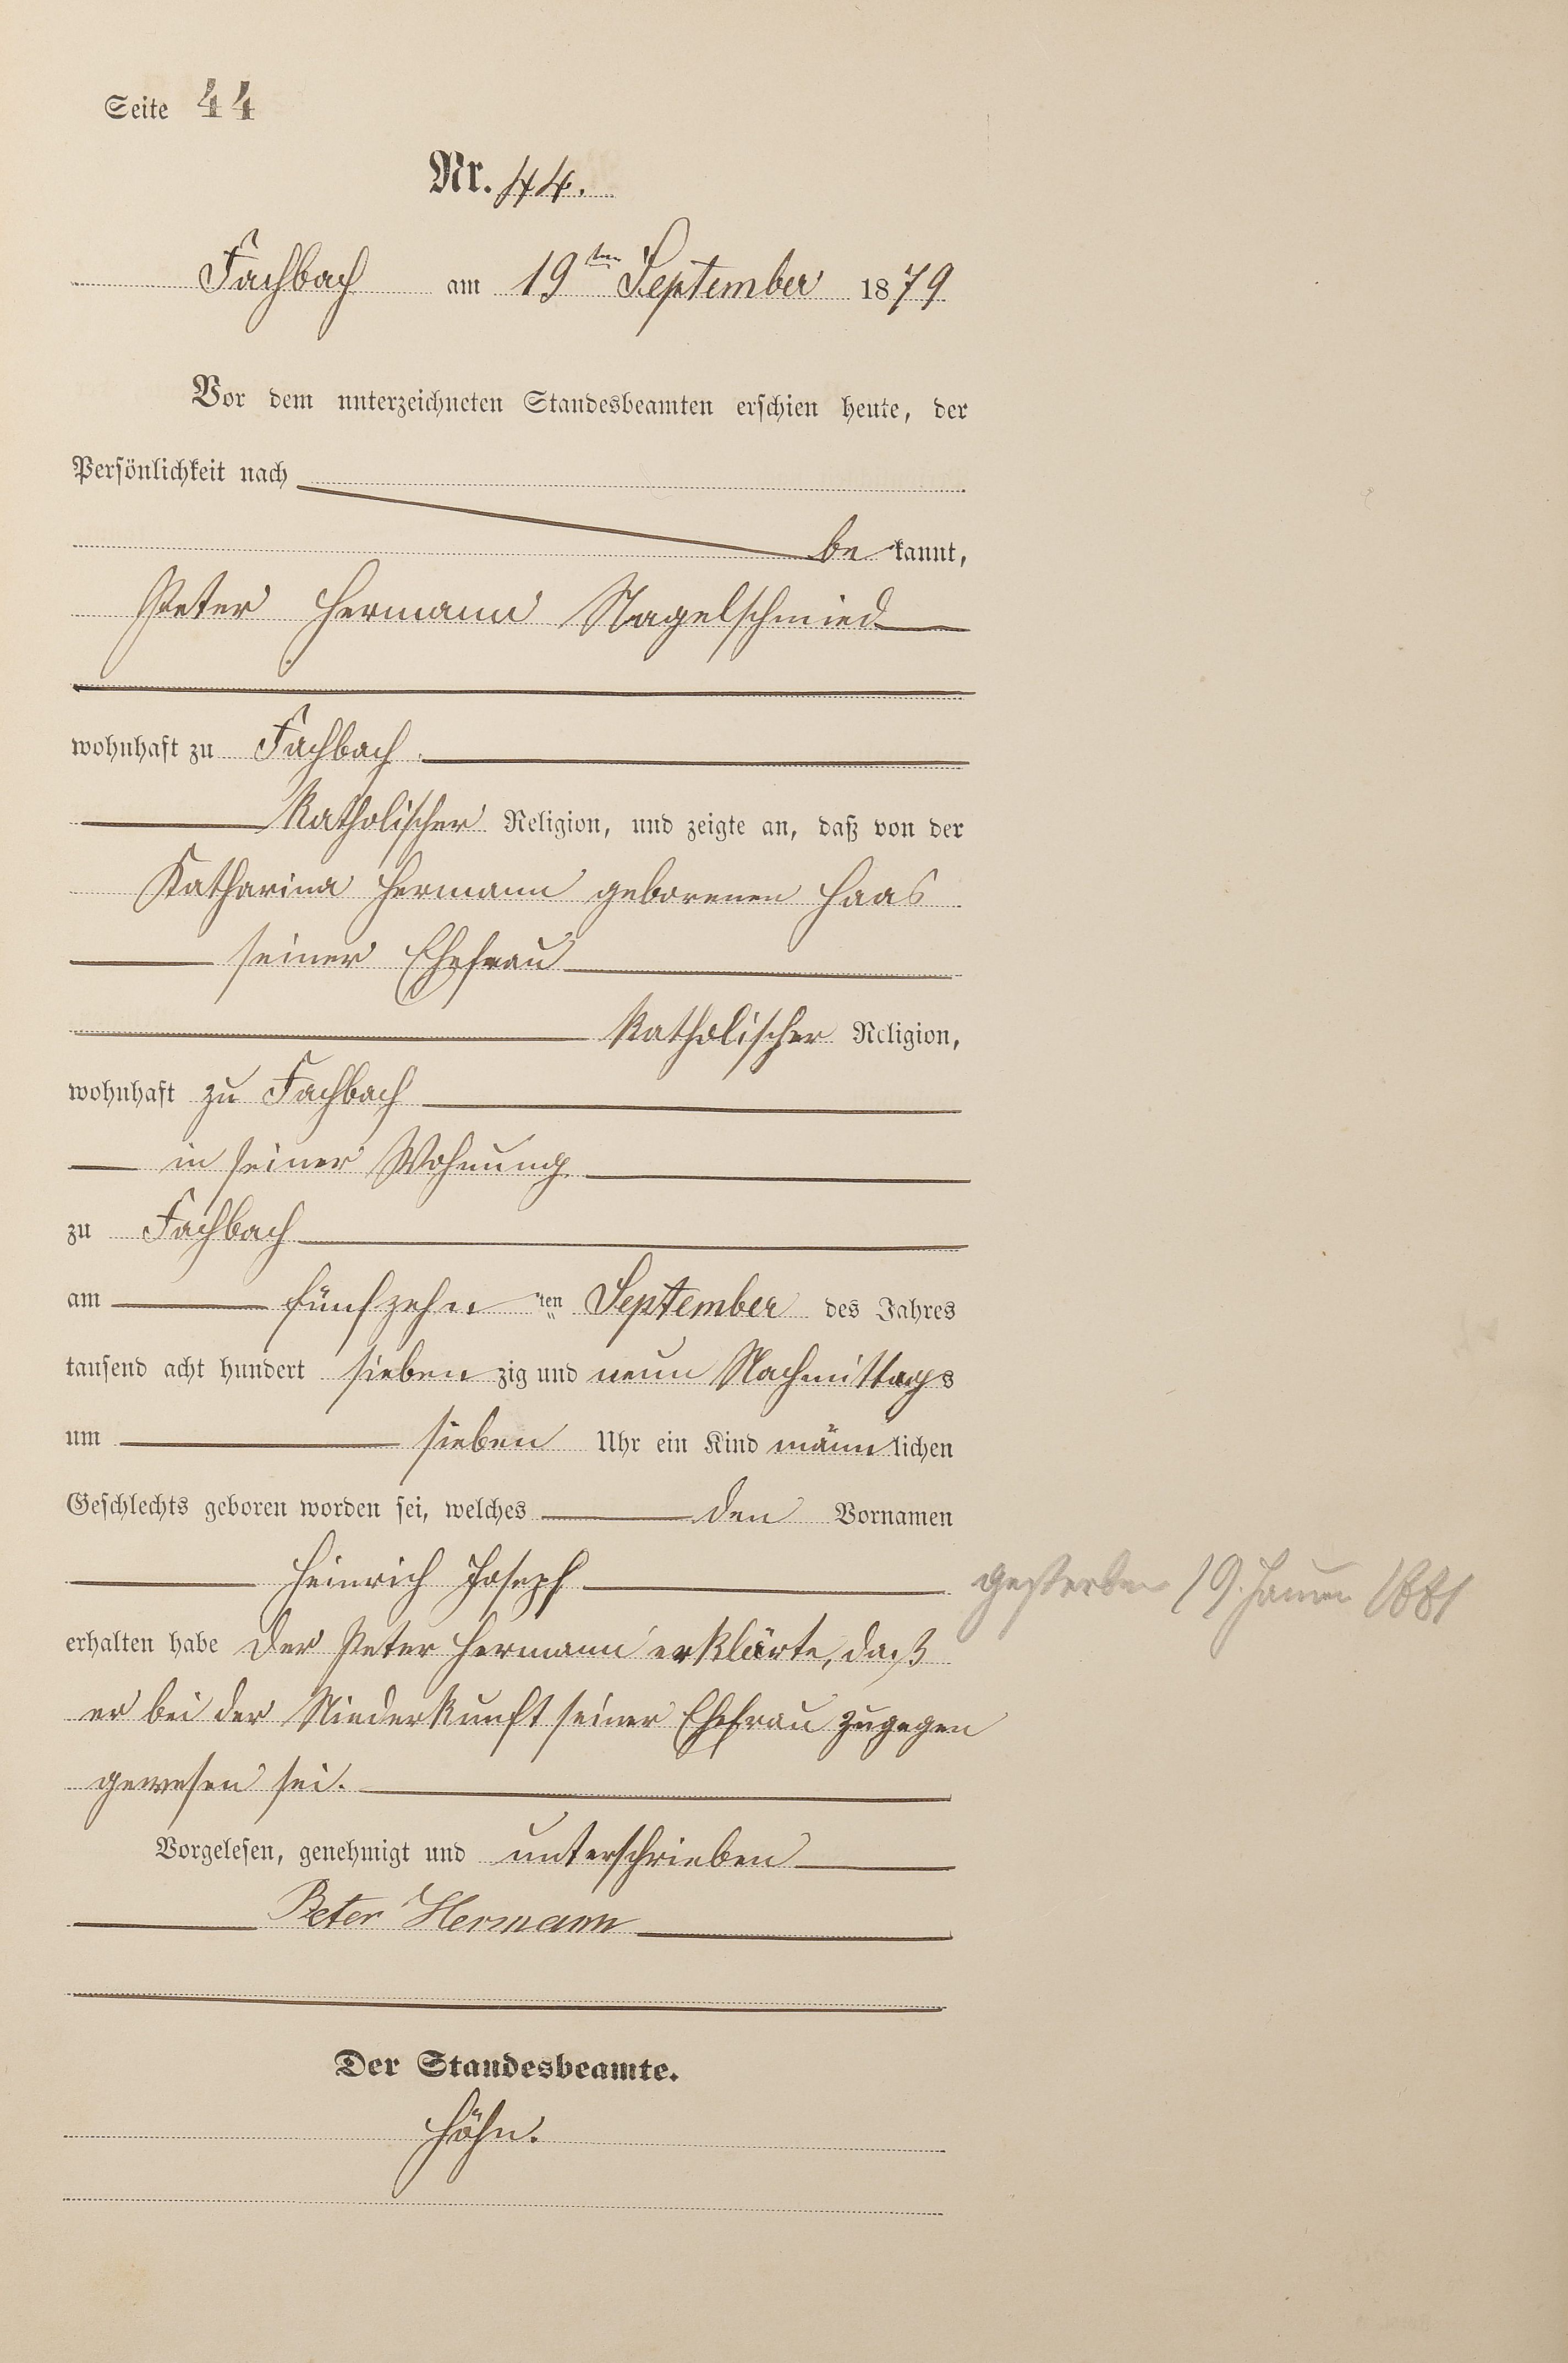 Seite 44
Nr. 44.
Fachbach am 19ten September 1879
Vor dem unterzeichneten Standesbeamten erschien heute, der
Persönlichkeit nach
be kannt,
Peter Hermann Nagelschmied
wohnhaft zu Fachbach
Katholischer Religion, und zeigte an, daß von der
Katharina Hermann geborenen Haas
seiner Ehefrau
Katholischer Religion,
wohnhaft zu Fachbach
in seiner Wohnung
zu Fachbach
am fünfzehn ten September des Jahres
tausend acht hundert sieben zig und neun Nachmittags
um sieben Uhr ein Kind männ lichen
Geschlechts geboren worden sei, welches den Vornamen
Heinrich Joseph
gestorben 19. Januar 1881
erhalten habe Der Peter Hermann erklärte, daß
er bei der Niederkunft seiner Ehefrau zugegen
gewesen sei.
Vorgelesen, genehmigt und unterschrieben
Peter Hermann
Der Standesbeamte.
Höhn.